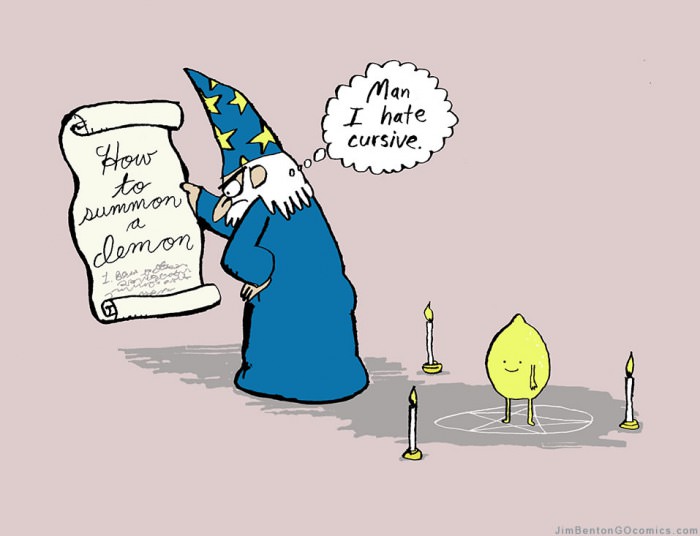 How
to
summon
a
demon
1.
Man
I hate
cursive.
JimBentonGOcomics.com